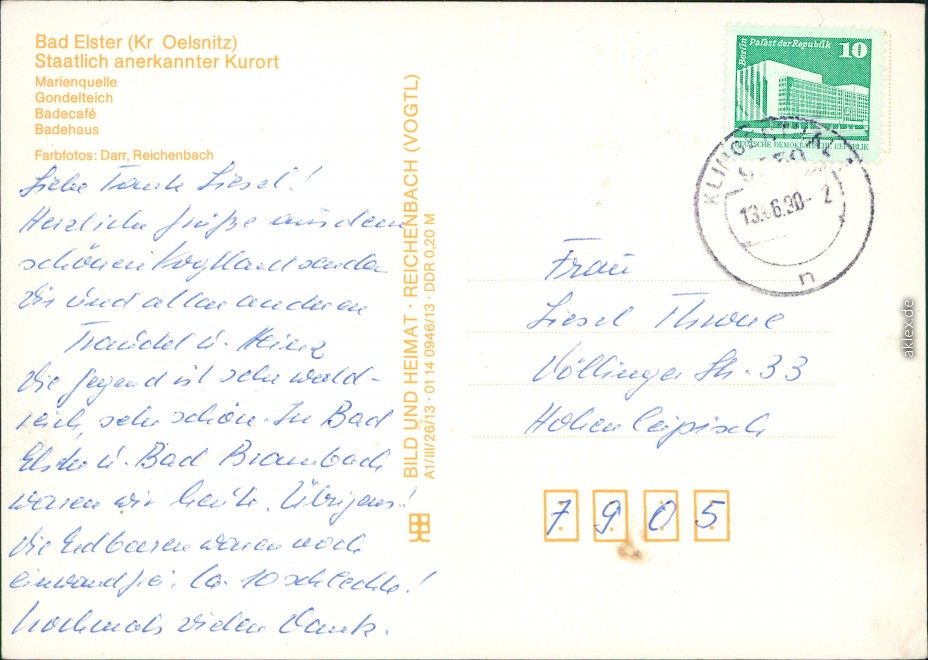 Bad Elster (Kr Oelsnitz)
Staatlich anerkannter Kurort
Marienquelle
Gondelteich
Badecafé
Badehaus
Farbfotos: Darr, Reichenbach
Liebe Tante Liesel!
Herzliche Grüße aus dem
schönen Vogtland senden
Dir und allen anderen
Traudel u. Heinz
Die Gegend ist sehr wald-
reich, sehr schön. In Bad
Elster u. Bad Brambach
waren wir heute. Übrigens!
Die Erdbeeren waren noch
einwandfrei. Ca. 10 schlechte!
Nochmals vielen Dank.
BILD UND HEIMAT · REICHENBACH (VOGTL)
A1/III/26/13 · 01 14 0946/13 · DDR 0,20 M
Berlin
Palast der Republik
10
DEUTSCHE DEMOKRATISCHE REPUBLIK
13.6.80-
n
Frau
Liesel
Str. 33
Hohenleipisch
7905
aklex.de